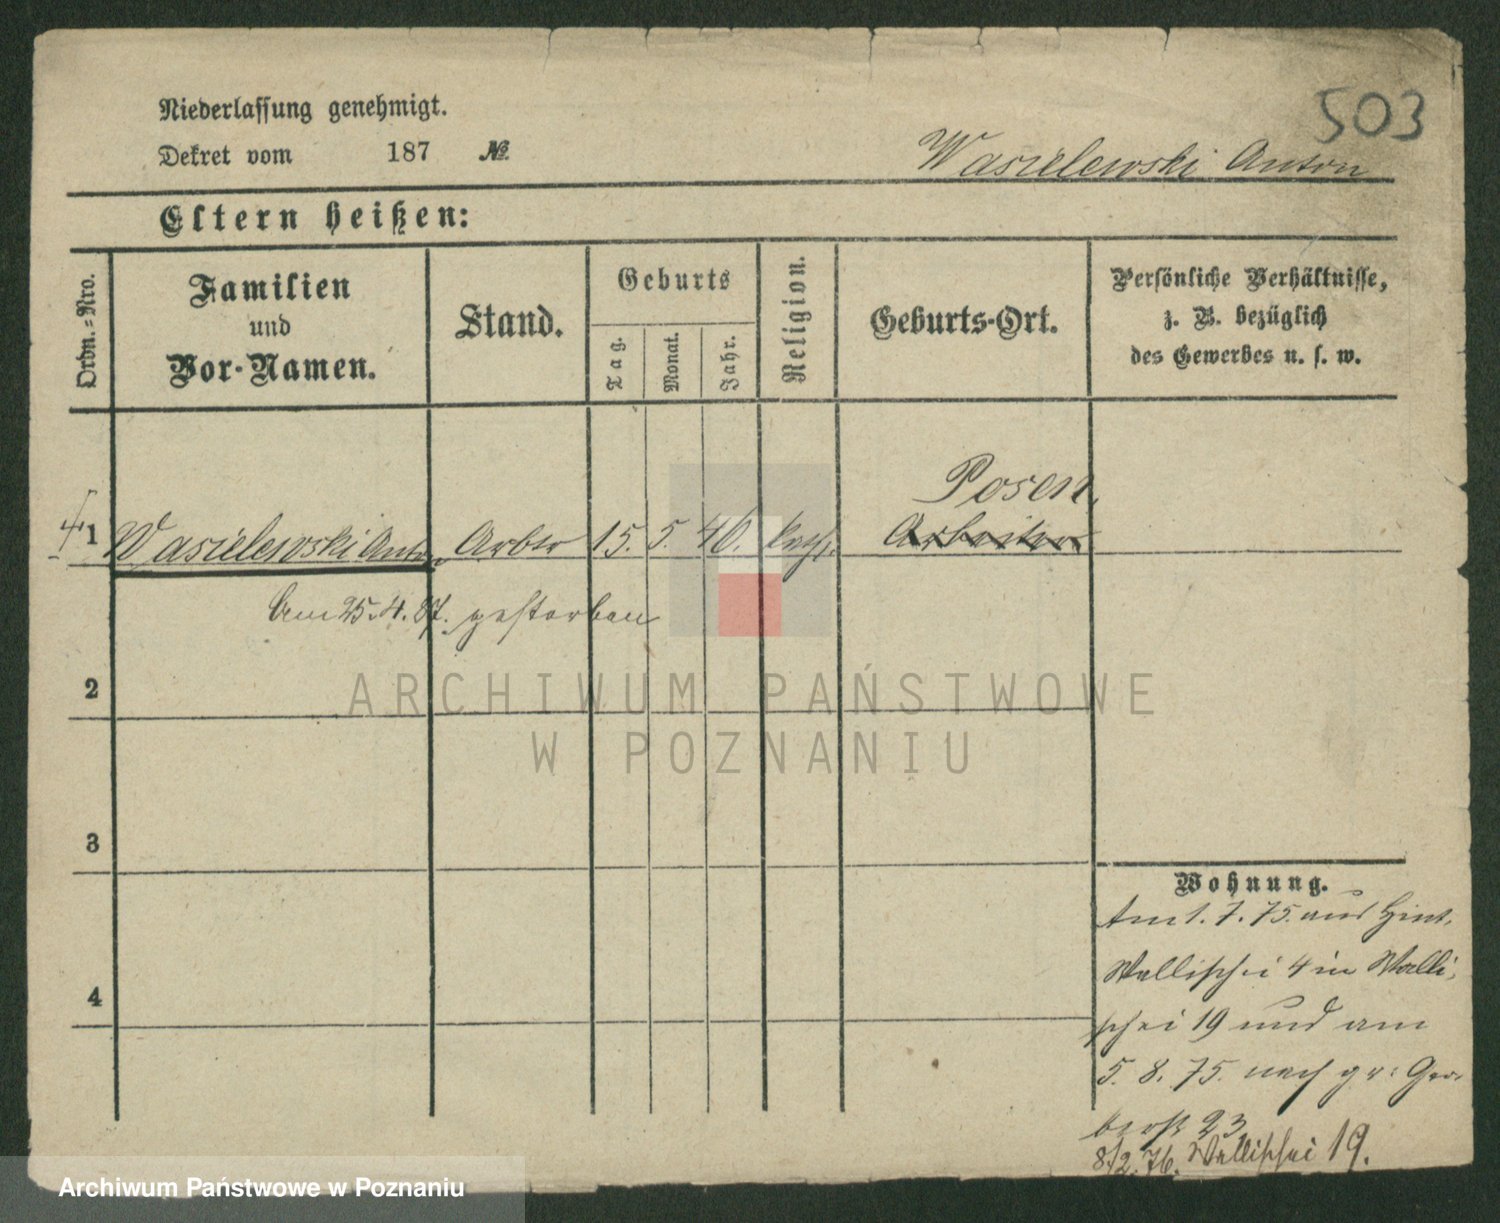 503
Niederlassung genehmigt.
Dekret vom 187 No.
Wasielewski Anton
Eltern heißen:
Ordn.-Nro.
Familien und Vor-Namen.
Stand.
Geburts
Tag.
Monat.
Jahr.
Religion.
Geburts-Ort.
Persönliche Verhältnisse,
z. B. bezüglich
des Gewerbes u. s. w.
Posen.
1 Wasielewski Anton Arbtr 15. 5. 46. kath. Arbeiter
Am 25.4.87. gestorben
2
3
4
Wohnung.
Am 1.7.75. aus Hint.
Wallischei 4 in Walli-
schei 19 und am
5.8.75. nach gr: Ger-
berstr 23
8/2.76. Wallischei 19.
ARCHIWUM PAŃSTWOWE
W POZNANIU
Archiwum Państwowe w Poznaniu